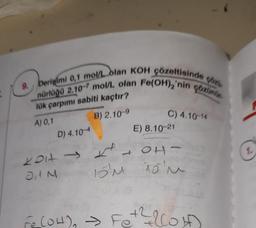 9. Derişimi 0,1 mol/L olan KOH çözeltisinde çözü-
nürlüğü 2.10⁻⁷ mol/L olan Fe(OH)₂'nin çözünür-
lük çarpımı sabiti kaçtır?
A) 0,1 B) 2.10⁻⁹ C) 4.10⁻¹⁴
D) 4.10⁻⁴ E) 8.10⁻²¹
KOH → K⁺ + OH⁻
0,1 M
Fe(OH)₂ → Fe⁺² + 2(OH)
1.